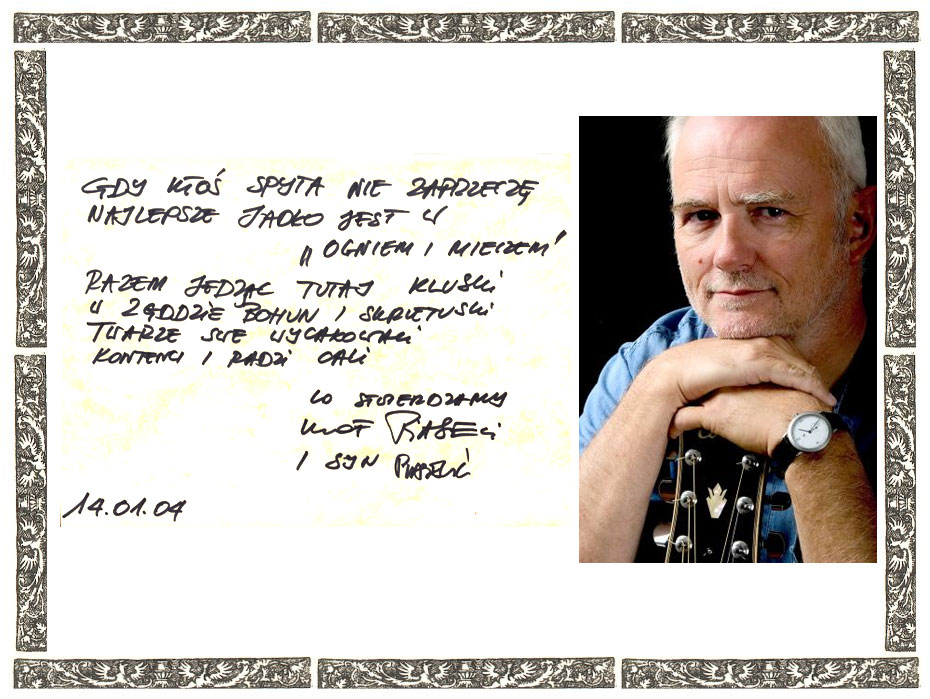 GDY KTOŚ SPYTA NIE ZAPRZECZĘ
NAJLEPSZE JADŁO JEST W
„OGNIEM I MIECZEM"
RAZEM JEDZĄC TUTAJ KLUSKI
W ZGODZIE BOHUN I SKRZETUSKI
TWARZE SWE WYCAŁOWALI
KONTENCI I RADZI CALI
CO STWIERDZAMY
I SYN
14.01.04